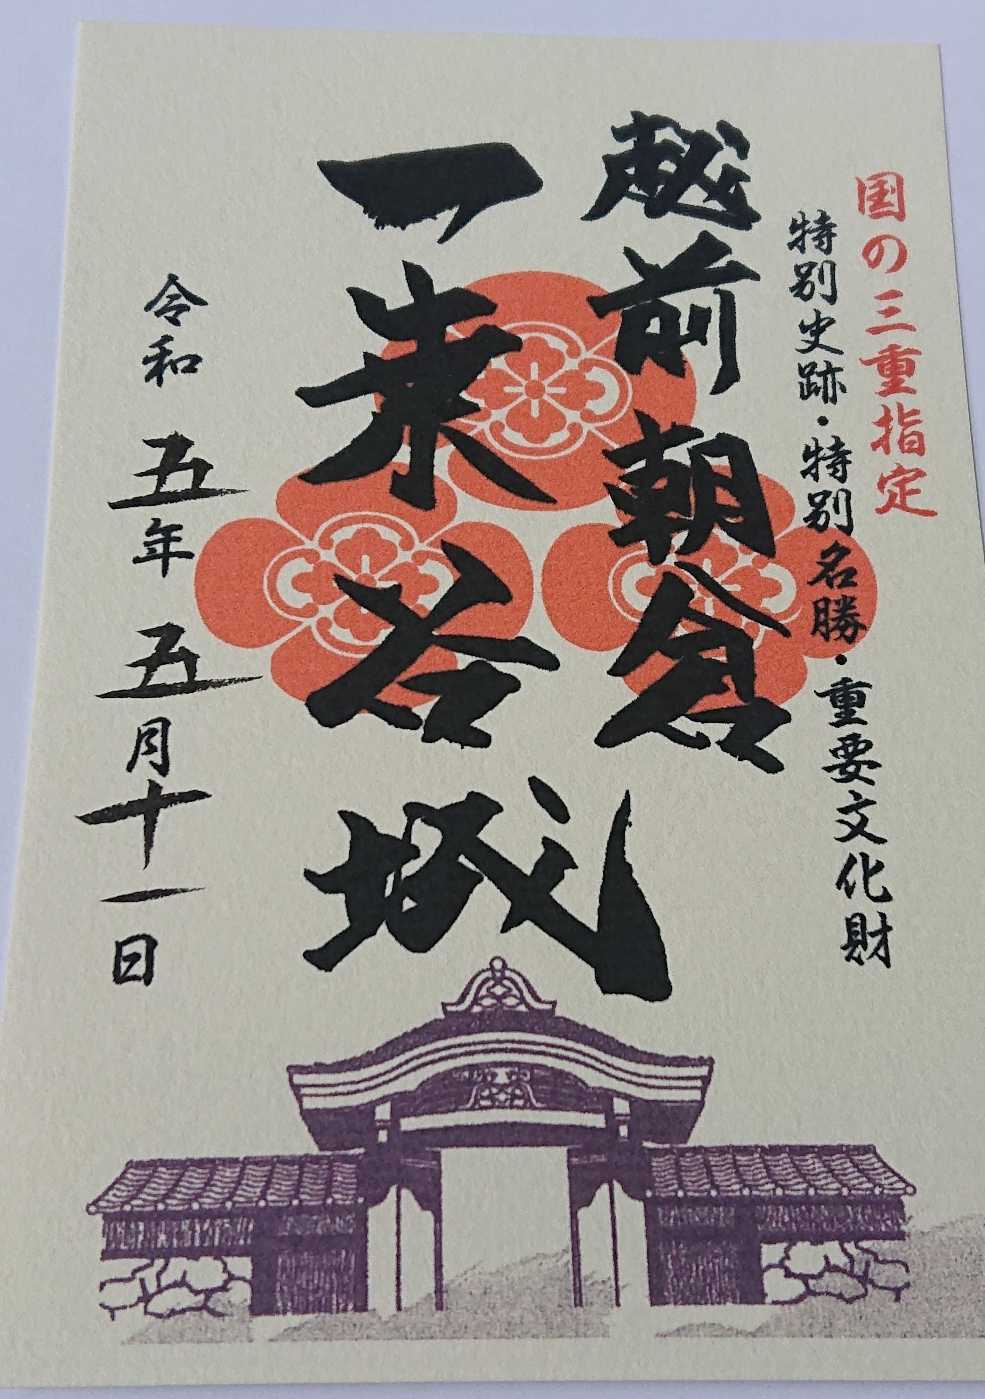 国の三重指定
特別史跡・特別名勝・重要文化財
越前朝倉
一乗谷城
令和五年五月十一日